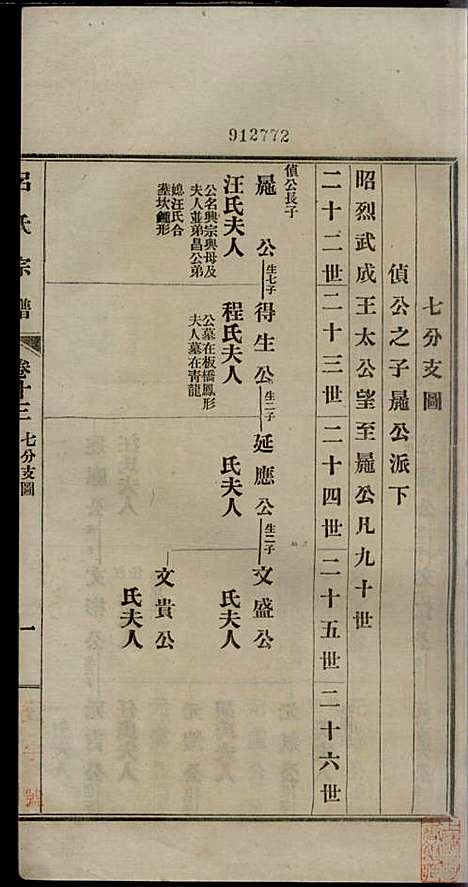 912772
七分支圖
偵公之子㫝公派下
昭烈武成王太公望至㫝公凡九十世
二十二世二十三世二十四世二十五世二十六世
偵公長子
㫝公
生七子
得生公
生二子
延應公
生二子
文盛公
汪氏夫人
程氏夫人
氏夫人
氏夫人
公名興宗與母及
夫人並弟昌公弟
媳汪氏合
塟坎鍾形
公墓在板橋鳳形
夫人墓在青龍
文貴公
氏夫人
呂氏宗譜
卷十三
七分支圖
一